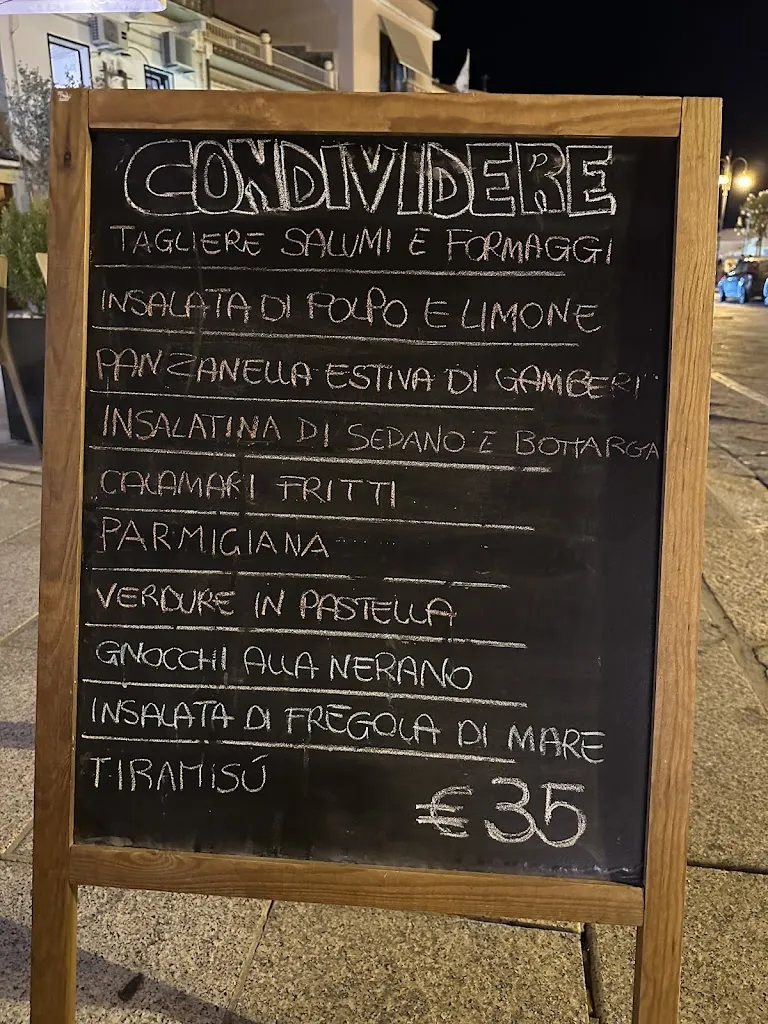 CONDIVIDERE
TAGLIERE SALUMI E FORMAGGI
INSALATA DI POLPO E LIMONE
PANZANELLA ESTIVA DI GAMBERI
INSALATINA DI SEDANO E BOTTARGA
CALAMARI FRITTI
PARMIGIANA
VERDURE IN PASTELLA
GNOCCHI ALLA NERANO
INSALATA DI FREGOLA DI MARE
TIRAMISÚ
€ 35